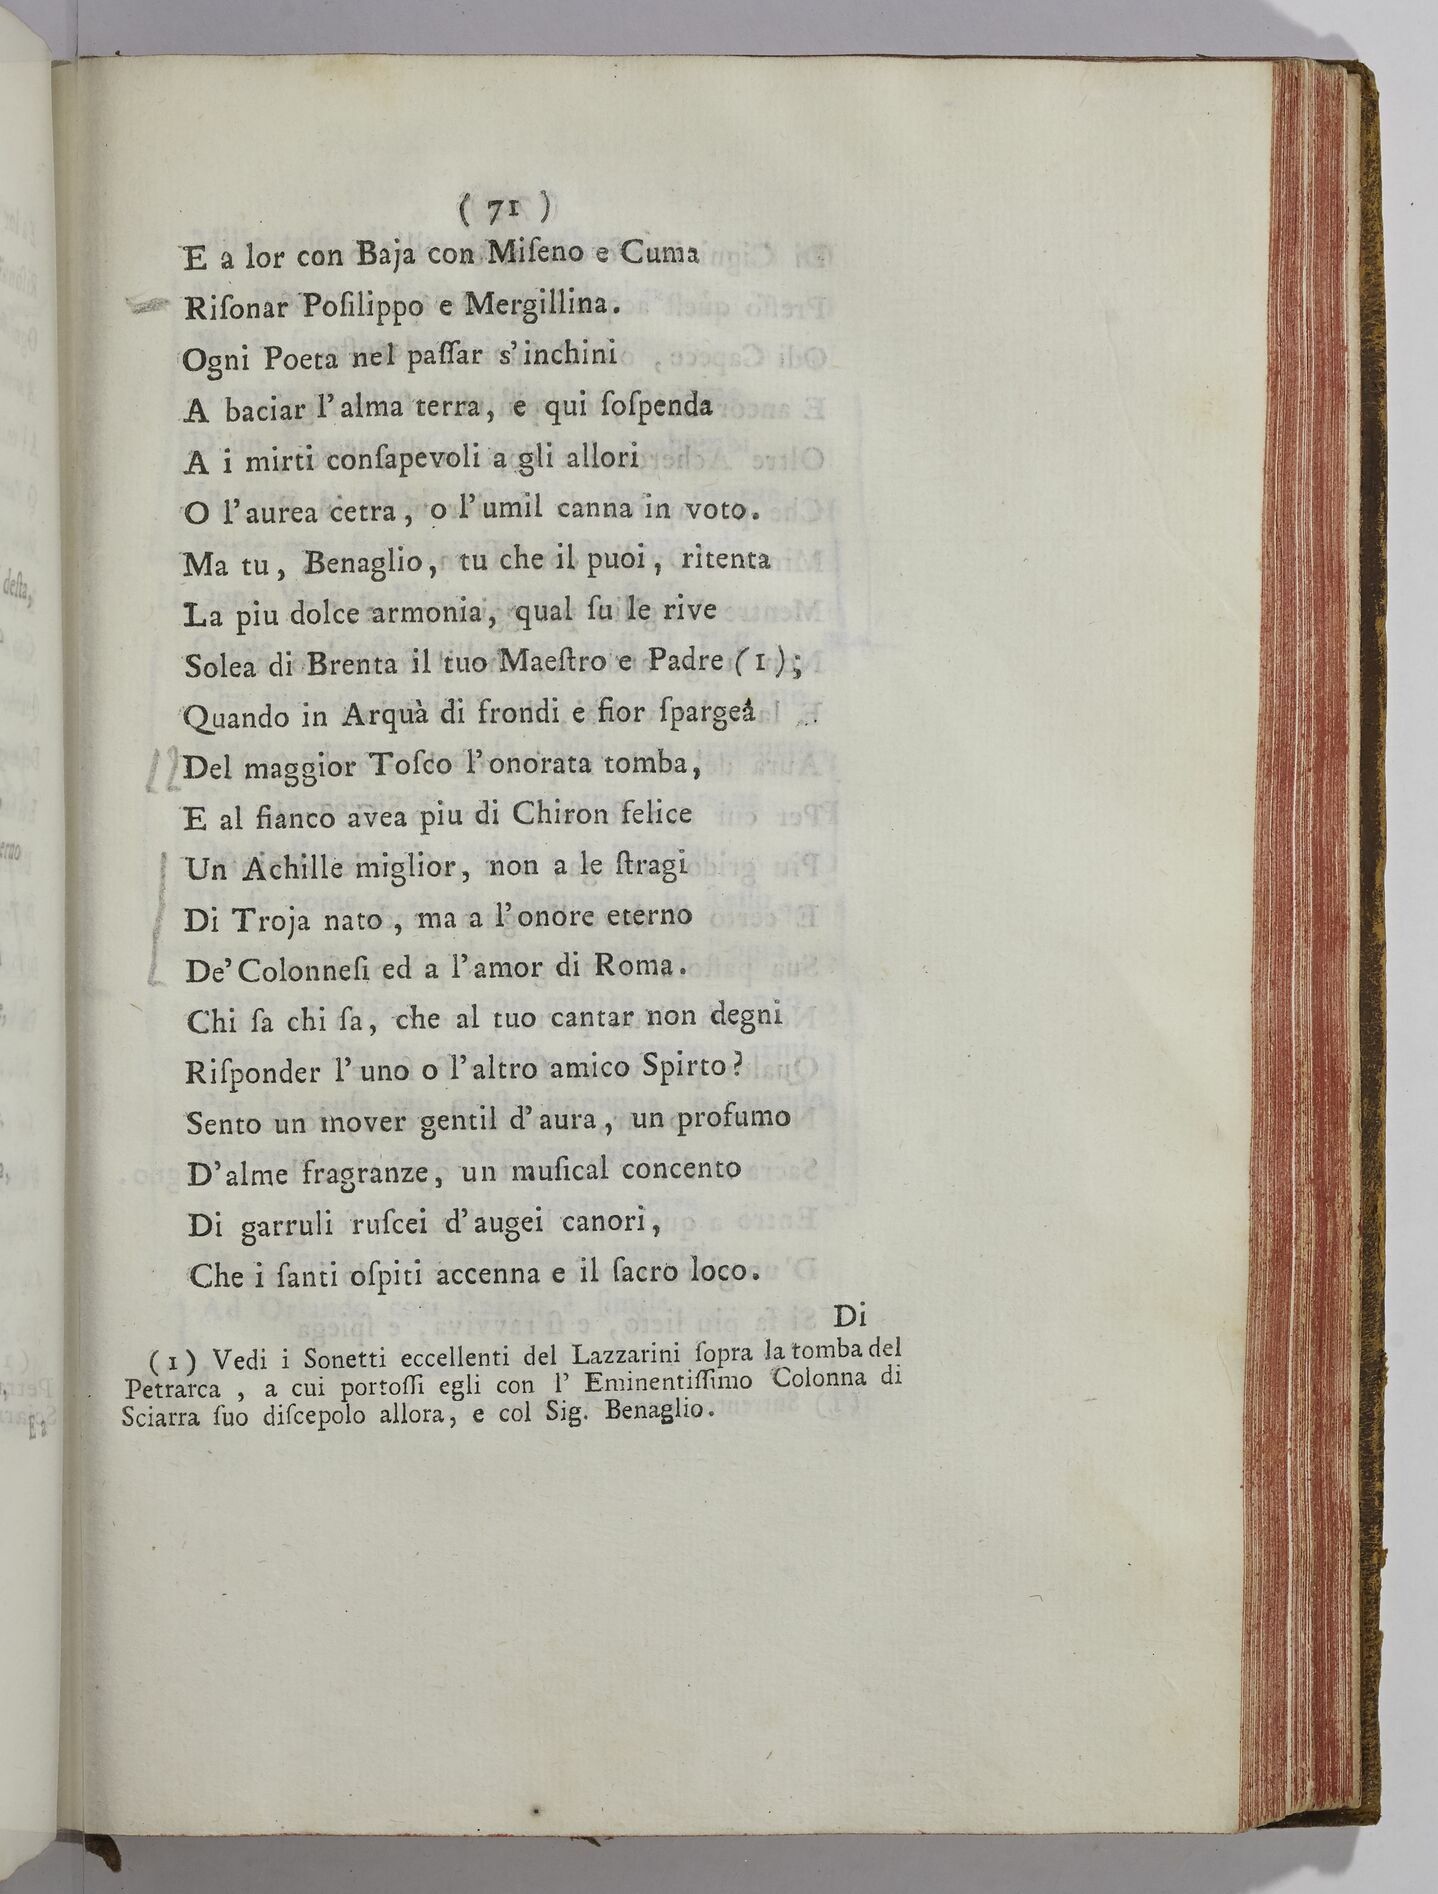 ( 71 )
E a lor con Baja con Miſeno e Cuma
Riſonar Poſilippo e Mergillina.
Ogni Poeta nel paſſar s'inchini
A baciar l'alma terra, e qui ſoſpenda
A i mirti conſapevoli a gli allori
O l'aurea cetra, o l'umil canna in voto.
Ma tu, Benaglio, tu che il puoi, ritenta
La piu dolce armonia, qual ſu le rive
Solea di Brenta il tuo Maeſtro e Padre (1);
Quando in Arquà di frondi e fior ſpargea
Del maggior Toſco l'onorata tomba,
E al fianco avea piu di Chiron felice
Un Achille miglior, non a le ſtragi
Di Troja nato, ma a l'onore eterno
De' Colonneſi ed a l'amor di Roma.
Chi ſa chi ſa, che al tuo cantar non degni
Riſponder l'uno o l'altro amico Spirto?
Sento un mover gentil d'aura, un profumo
D'alme fragranze, un muſical concento
Di garruli ruſcei d'augei canori,
Che i ſanti oſpiti accenna e il ſacro loco.
Di
(1) Vedi i Sonetti eccellenti del Lazzarini ſopra la tomba del
Petrarca, a cui portoſſi egli con l' Eminentiſſimo Colonna di
Sciarra ſuo diſcepolo allora, e col Sig. Benaglio.
deſta,